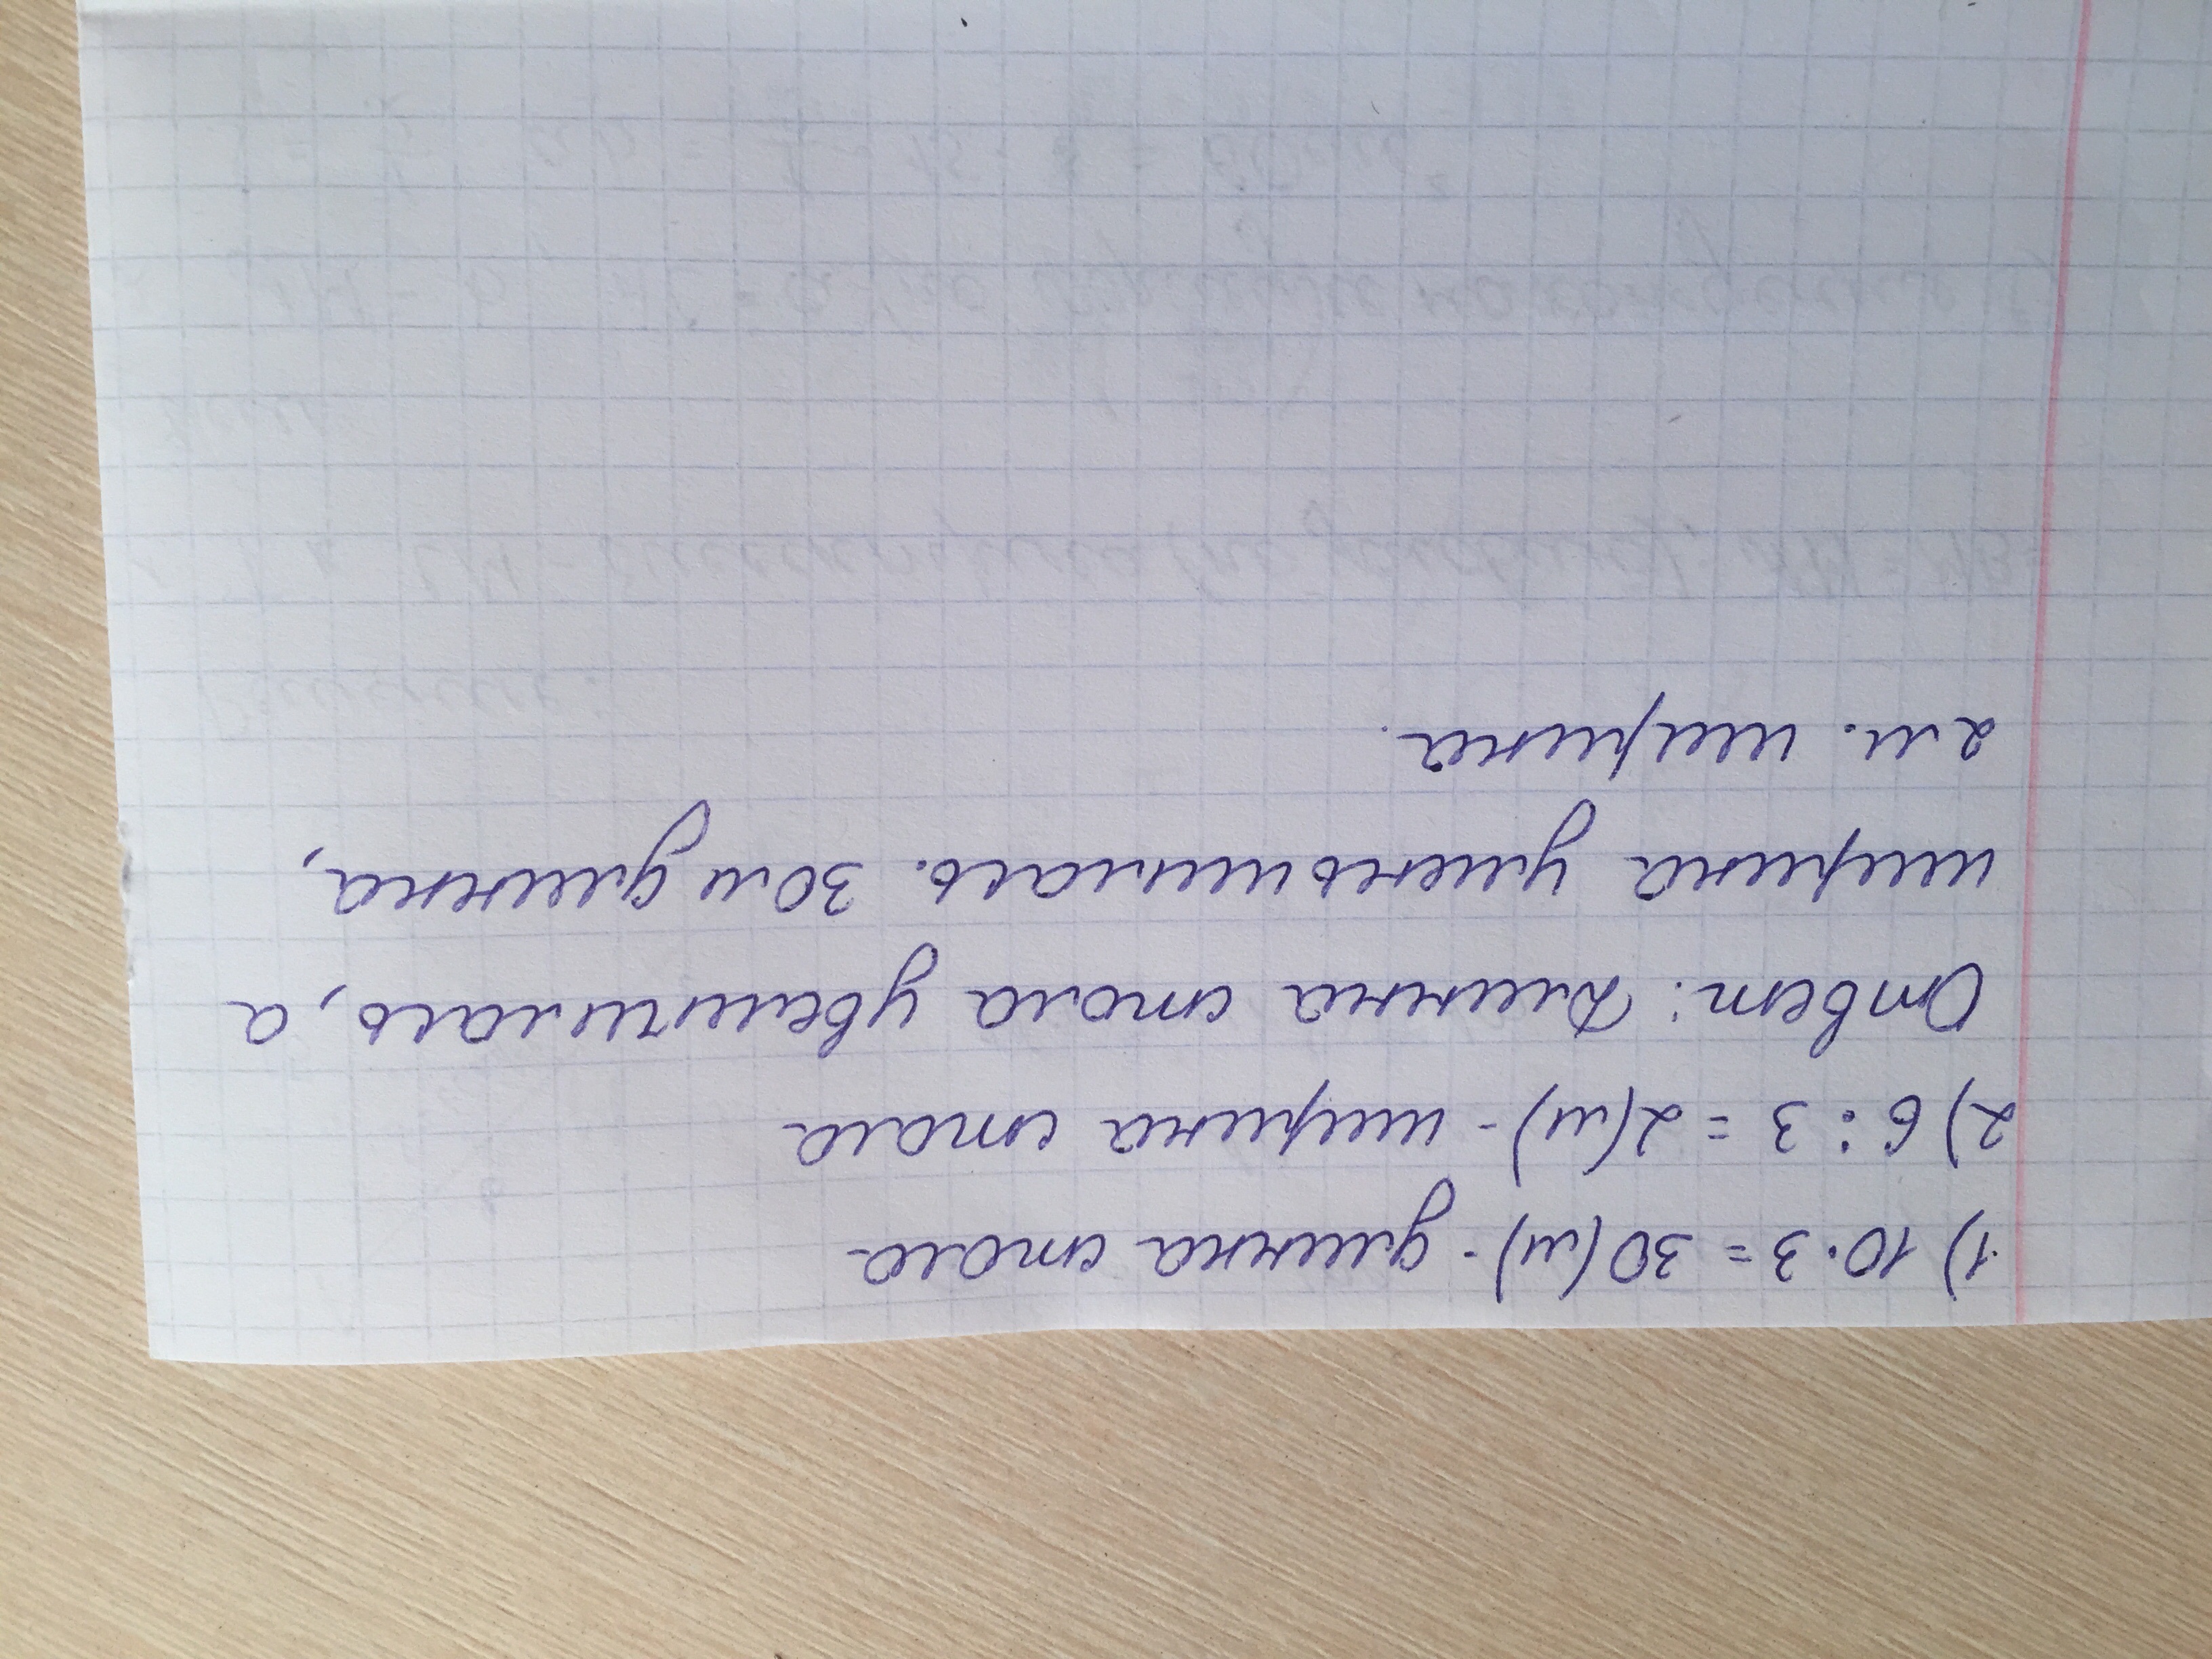 1) 10·3 = 30(м) - длинна стола
2) 6:3 = 2(м) - ширина стола
Ответ: Длинна стола увеличилась, а
ширина уменьшилась. 30м длинна,
2м. ширина.